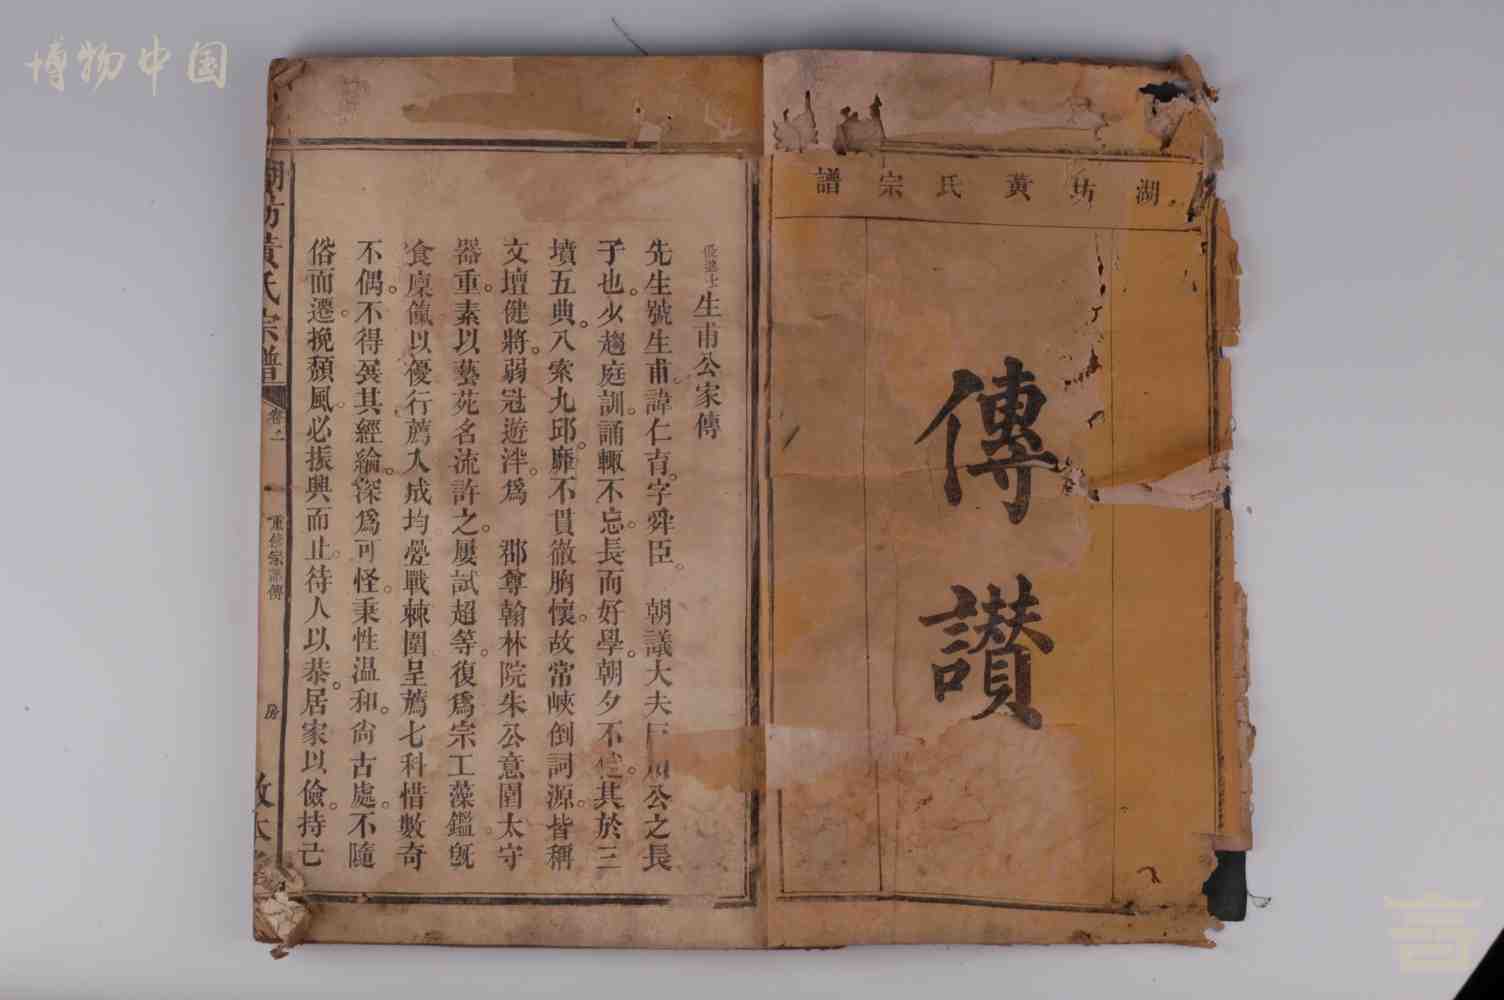 博物中国
湖坊黃氏宗譜
傳讃
生甫公家傳
先生號生甫。諱仁育。字舜臣。 朝議大夫 公之長
子也。少趨庭訓。誦輒不忘。長而好學。朝夕不 。其於三
墳五典。八索九邱。靡不貫徹胸懷。故常峽倒詞源。皆稱
文壇健將。弱冠遊泮。爲 郡尊翰林院朱公意園太守
器重。素以藝苑名流許之。屢試超等。復爲宗工藻鑑。旣
食廩餼。以優行薦入成均。疊戰棘圍。呈薦七科。惜數奇
不偶。不得展其經綸。深爲可怪。秉性温和。尙古處。不隨
俗而遷。挽頹風。必振興而止。待人以恭。居家以儉。持己
湖坊黃氏宗譜
卷二
重修宗譜傳
房
敦本